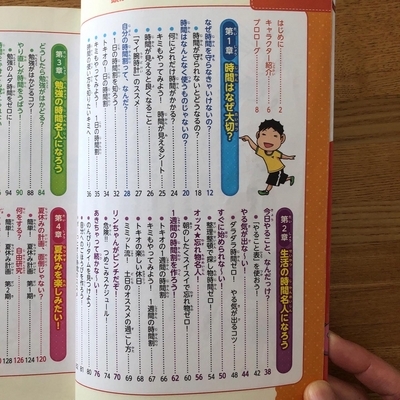 はじめに 2
キャラクター紹介 6
プロローグ 8
第1章 時間はなぜ大切？
なぜ時間を守らなきゃいけないの？ 12
時間を守れないとどうなるの？ 18
時間はなんとなく使うものじゃないの？ 20
何にどれだけ時間がかかる？
キミもやってみよう！ 時間が見えるシート
時間が見えると良くなること
「マイ腕時計」のススメ
自分の時間割って、なんだ？
1日の時間割を知ろう！
トキオの1日の時間割
キミもやってみよう！ 1日の時間割
第2章 生活の時間名人になろう
今日やること、なんだっけ？ 38
「やること表」を使おう！ 42
やる気が出な〜い！ 44
グラグラ時間ゼロ！ やる気が出るコツ 48
すぐに始められな〜い！ 50
整理整頓で探し物時間ゼロ！ 54
オッス★忘れ物名人！ 56
朝のしたくスイスイで忘れ物ゼロ！ 60
1週間の時間割を作ろう！ 62
トキオの1週間の時間割 66
キミもやってみよう！ 1週間の時間割 67
トキオの楽しい休日 68
ミミット流！ 土日のオススメの過ごし方 69
リンちゃんがピンチだぞ！ 70
危険！つめこみスケジュール！ 74
あきちゃって続かな〜い！ 76
第3章 勉強の時間名人になろう
どうしたら勉強がはかどる？ 84
勉強がはかどるコツ 88
やり直しが時間をうばう！ 90
勉強のムダ時間をゼロに！ 94
第4章 夏休みを楽しみたい！
夏休みの計画、面倒じゃない？ 120
簡単！ 夏休み計画 第1期
簡単！ 夏休み計画 第2期 126
何をする？ 自由研究 128